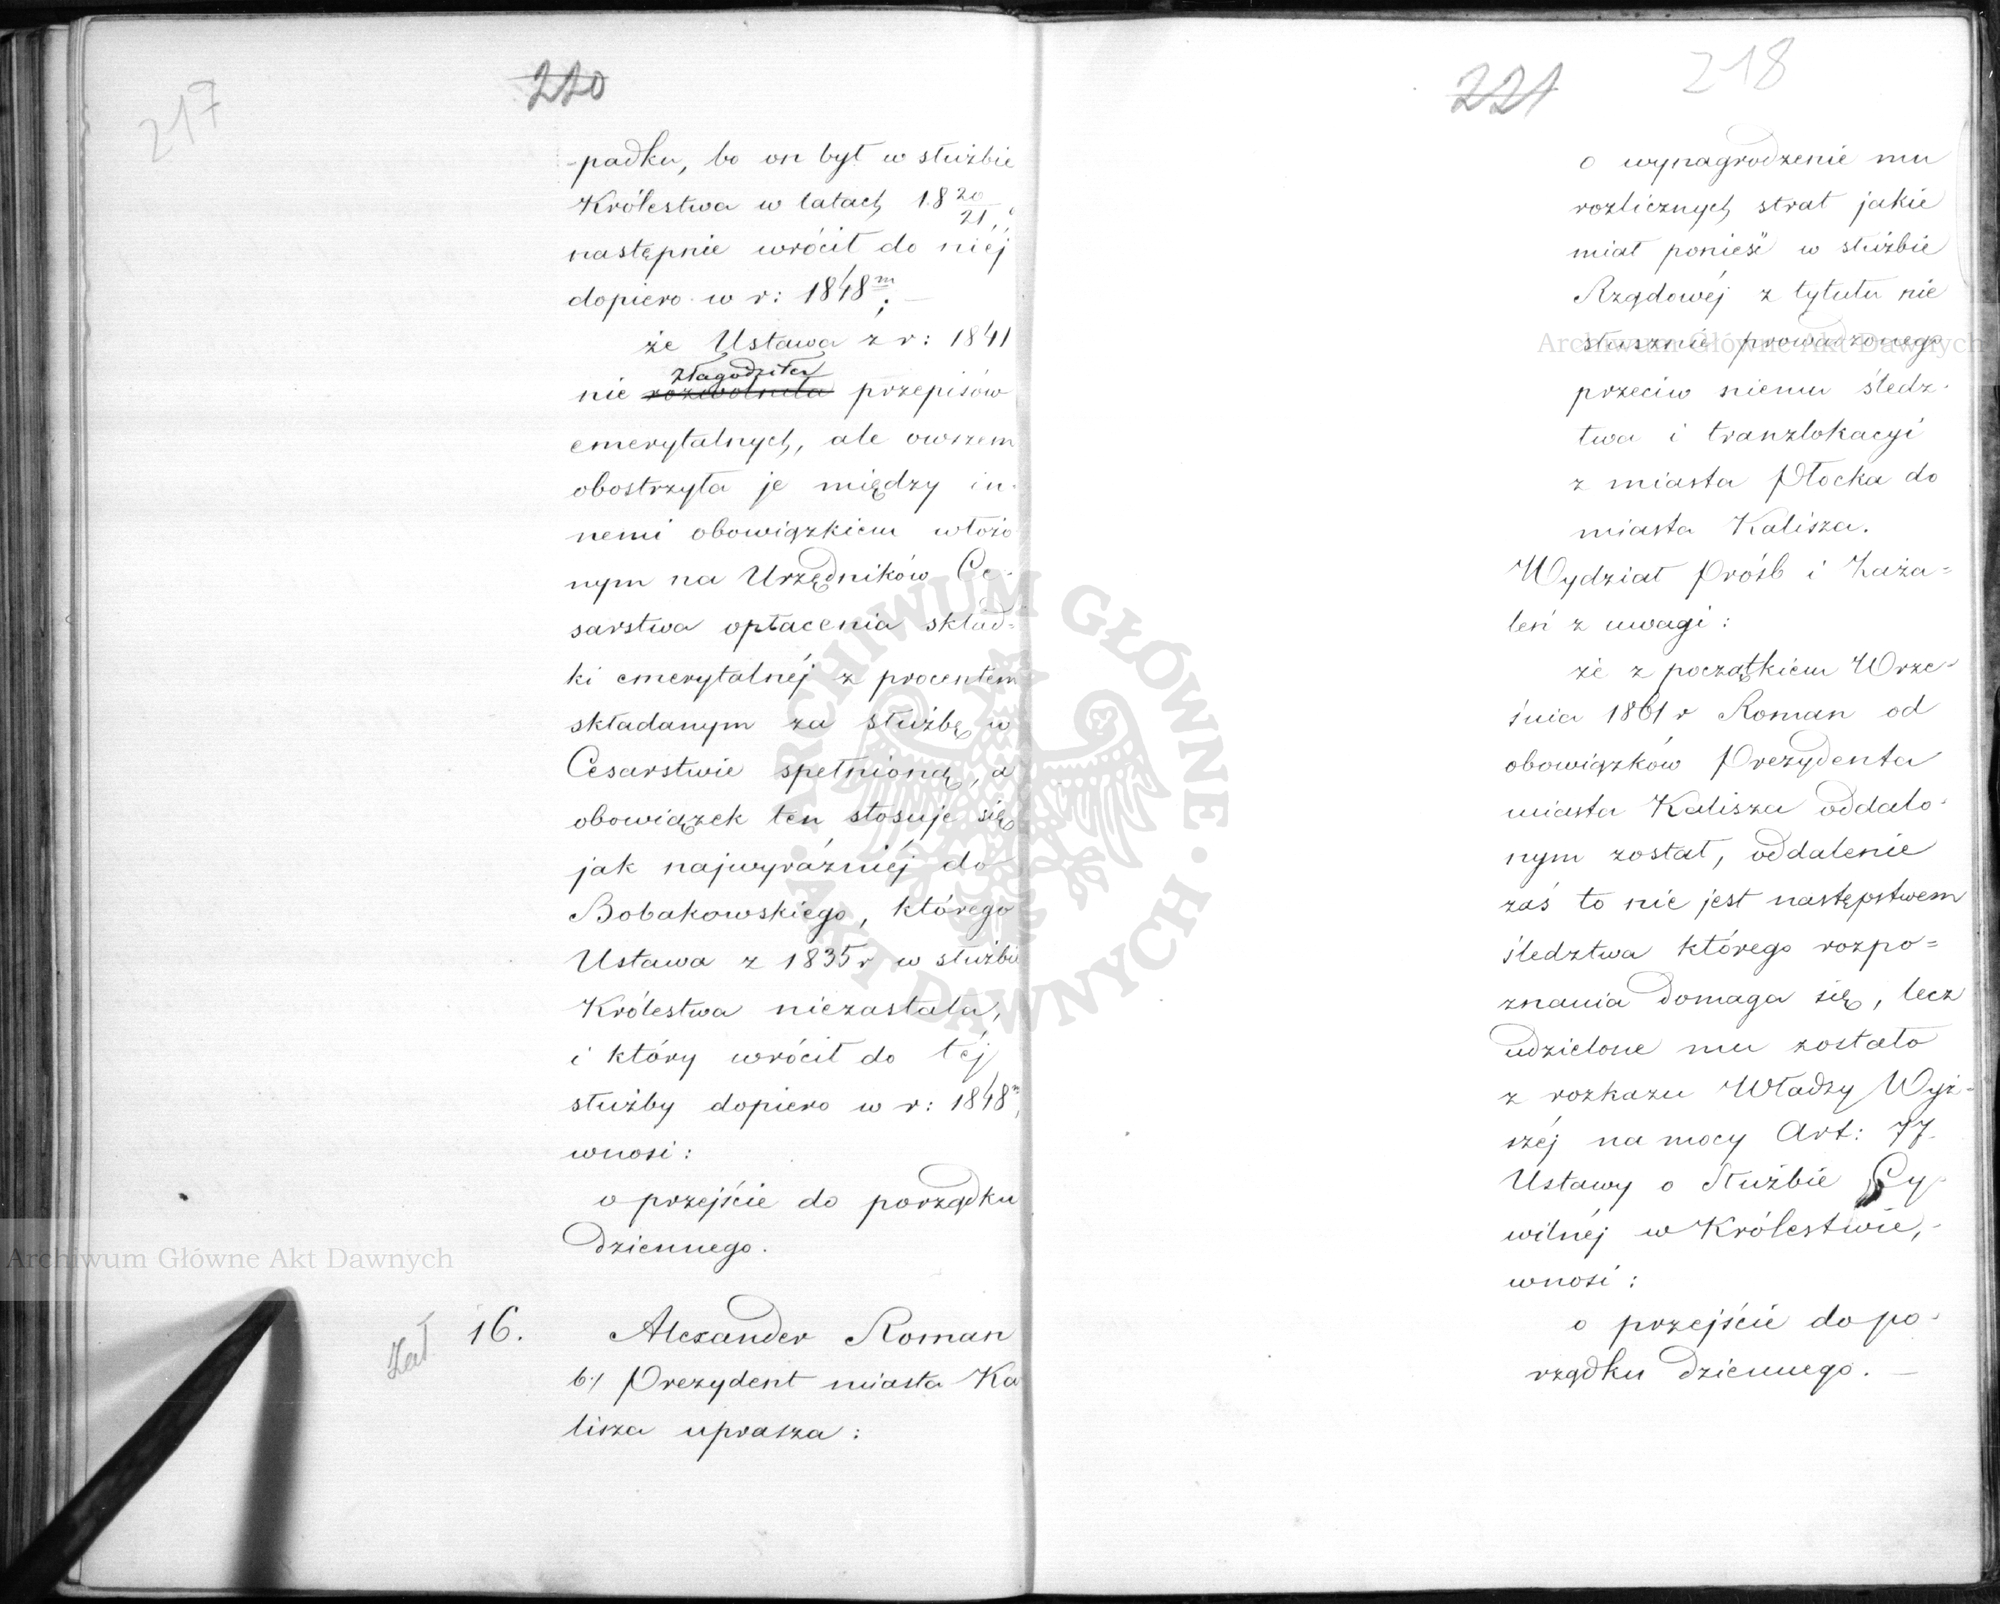 217
220
-padku, bo on był w służbie
Królestwa w latach 18 20/21,
następnie wrócił do niéj
dopiero w r: 1848m; —
że Ustawa z r: 1841
złagodziła
nie rozwolniła przepisów
emerytalnych, ale owszem
obostrzyła je między in-
nemi obowiązkiem włożo
nym na Urzędników Ce-
sarstwa opłacenia skład=
ki emerytalnéj z procentem
składanym za służbę w
Cesarstwie spełnioną, a
obowiązek ten stosuje się
jak najwyraźniéj do
Bobakowskiego, którego
Ustawa z 1835 r w służbie
Królestwa niezastała,
i który wrócił do téj
służby dopiero w r: 1848m,
wnosi:
o przejście do porządku
dziennego.
Zał
16. Alexander Roman
b./ Prezydent miasta Ka
lisza uprasza:
221
218
o wynagrodzenie mu
rozlicznych strat jakie
miał ponieść w służbie
Rządowéj z tytułu nie
słusznie prowadzonego
przeciw niemu śledz-
twa i tranzlokacyi
z miasta Płocka do
miasta Kalisza.
Wydział Próśb i Zaża=
leń z uwagi:
że z początkiem Wrze-
śnia 1861 r Roman od
obowiązków Prezydenta
miasta Kalisza oddalo-
nym został, oddalenie
zaś to nie jest następstwem
śledztwa którego rozpo=
znania domaga się, lecz
udzielone mu zostało
z rozkazu Władzy Wyż-
széj na mocy Art: 77.
Ustawy o Służbie Cy-
wilnéj w Królestwie,-
wnosi:
o przejście do po-
rządku dziennego. —
Archiwum Główne Akt Dawnych
Archiwum Główne Akt Dawnych
ARCHIWUM GŁÓWNE · AKT DAWNYCH ·